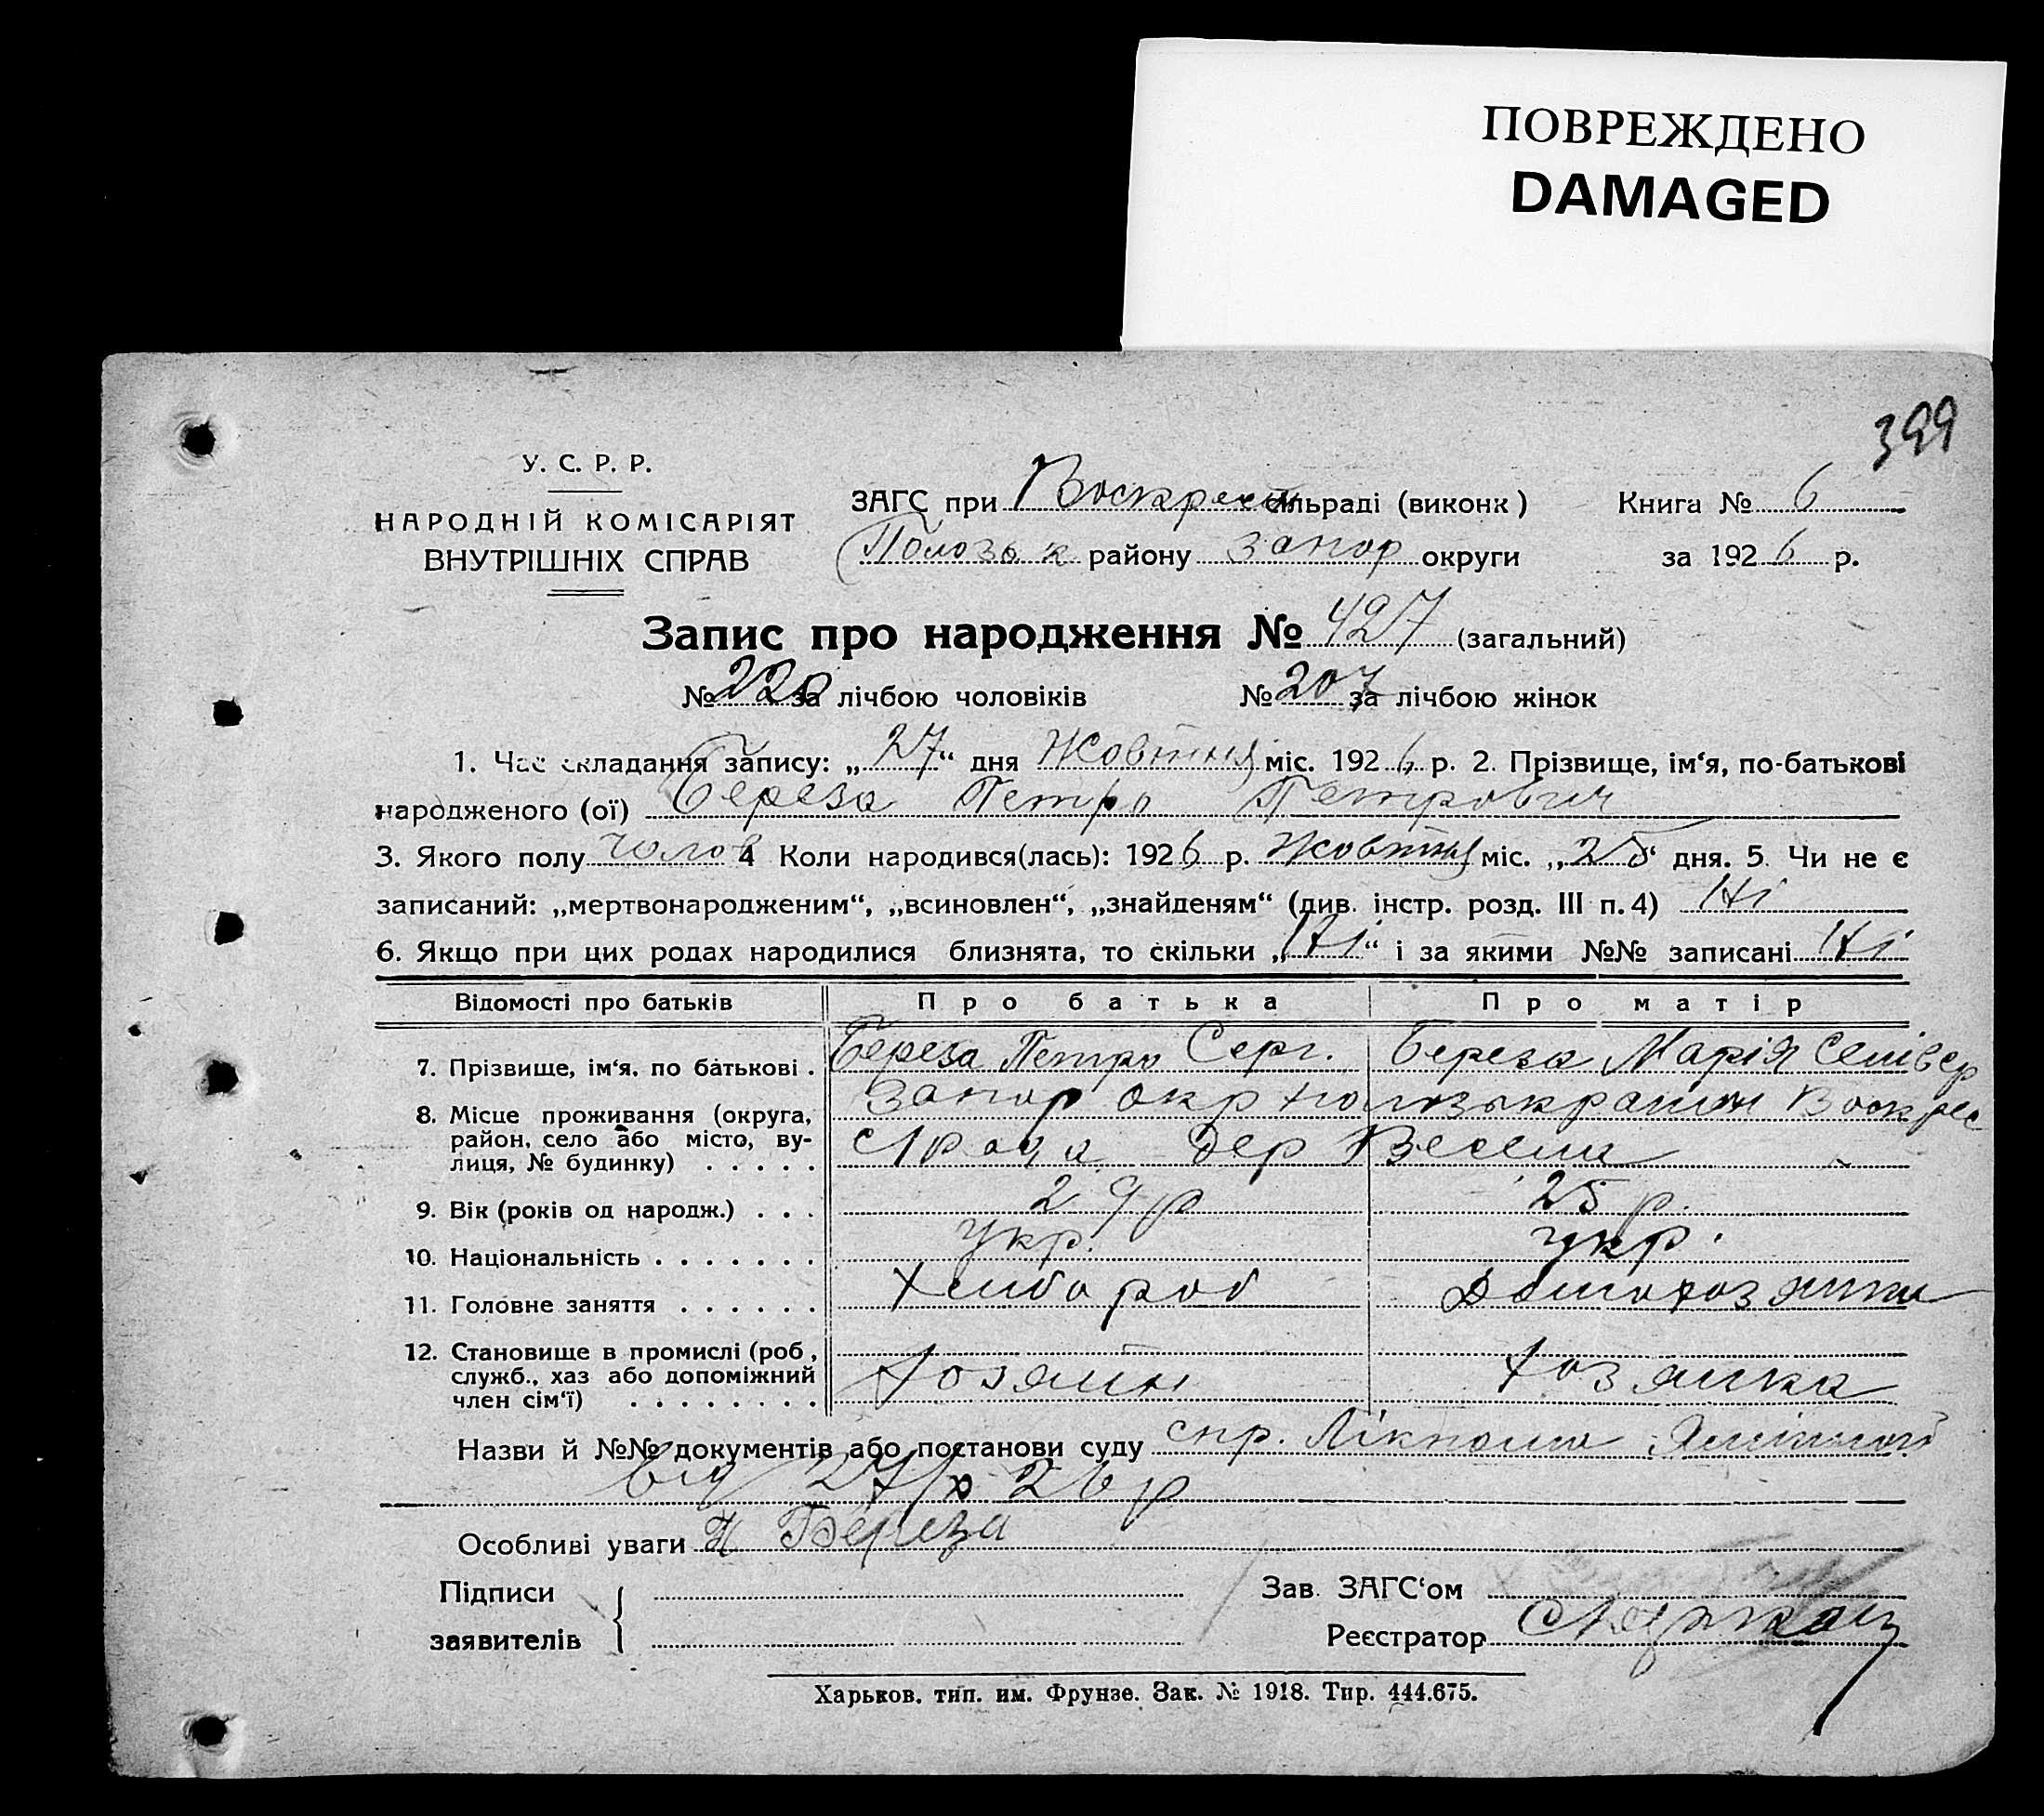 ПОВРЕЖДЕНО
DAMAGED
399
У. С. Р. Р.
НАРОДНІЙ КОМІСАРІЯТ
ВНУТРІШНІХ СПРАВ
ЗАГС при Воскресен сільраді (виконк)
Книга № 6
району Запор округи
за 1926 р.
Запис про народження № 427 (загальний)
№ 220 за лічбою чоловіків № 207 за лічбою жінок
1. Час складання запису: „27“ дня Жовтня міс. 1926 р. 2. Прізвище, ім‘я, по-батькові
народженого (ої) Береза Петро Петрович
3. Якого полу Чолов 4 Коли народився(лась): 1926 р. Жовтня міс. „25“ дня. 5. Чи не є
записаний: „мертвонародженим“, „всиновлен“, „знайденям“ (див. інстр. розд. III п. 4) Ні
6. Якщо при цих родах народилися близнята, то скільки „Ні“ і за якими №№ записані Ні
Відомості про батьків Про батька Про матір
7. Прізвище, ім‘я, по батькові . Береза Петро Серг. Береза Марія Селівер
8. Місце проживання (округа, район, село або місто, вулиця, № будинку) . . . . . Запор окр Воскрес
дер Весела
9. Вік (років од народж.) . . . 29 р 25 р.
10. Національність . . . . . . . укр. укр.
11. Головне заняття . . . . . . Хлібороб Домохозяйка
12. Становище в промислі (роб., служб., хаз або допоміжний член сім‘ї) . . . . . . . . Хозяїн Хозяйка
Назви й №№ документів або постанови суду спр. Лікпома
від 27/х 26 р
Особливі уваги П Береза
Підписи заявителів
Зав. ЗАГС‘ом
Реєстратор
Харьков. тип. им. Фрунзе. Зак. № 1918. Тир. 444.675.